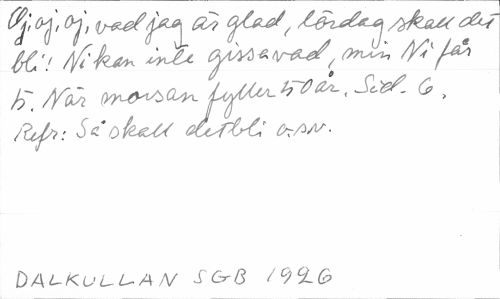 Oj, oj, oj, vad jag är glad, lördag skall det
bli! Ni kan inte gissa vad, min Ni får
5. När morsan fyller 50 år. Sid. 6.
Refr: Så skall det bli o.s.v.
DALKULLAN SGB 1926